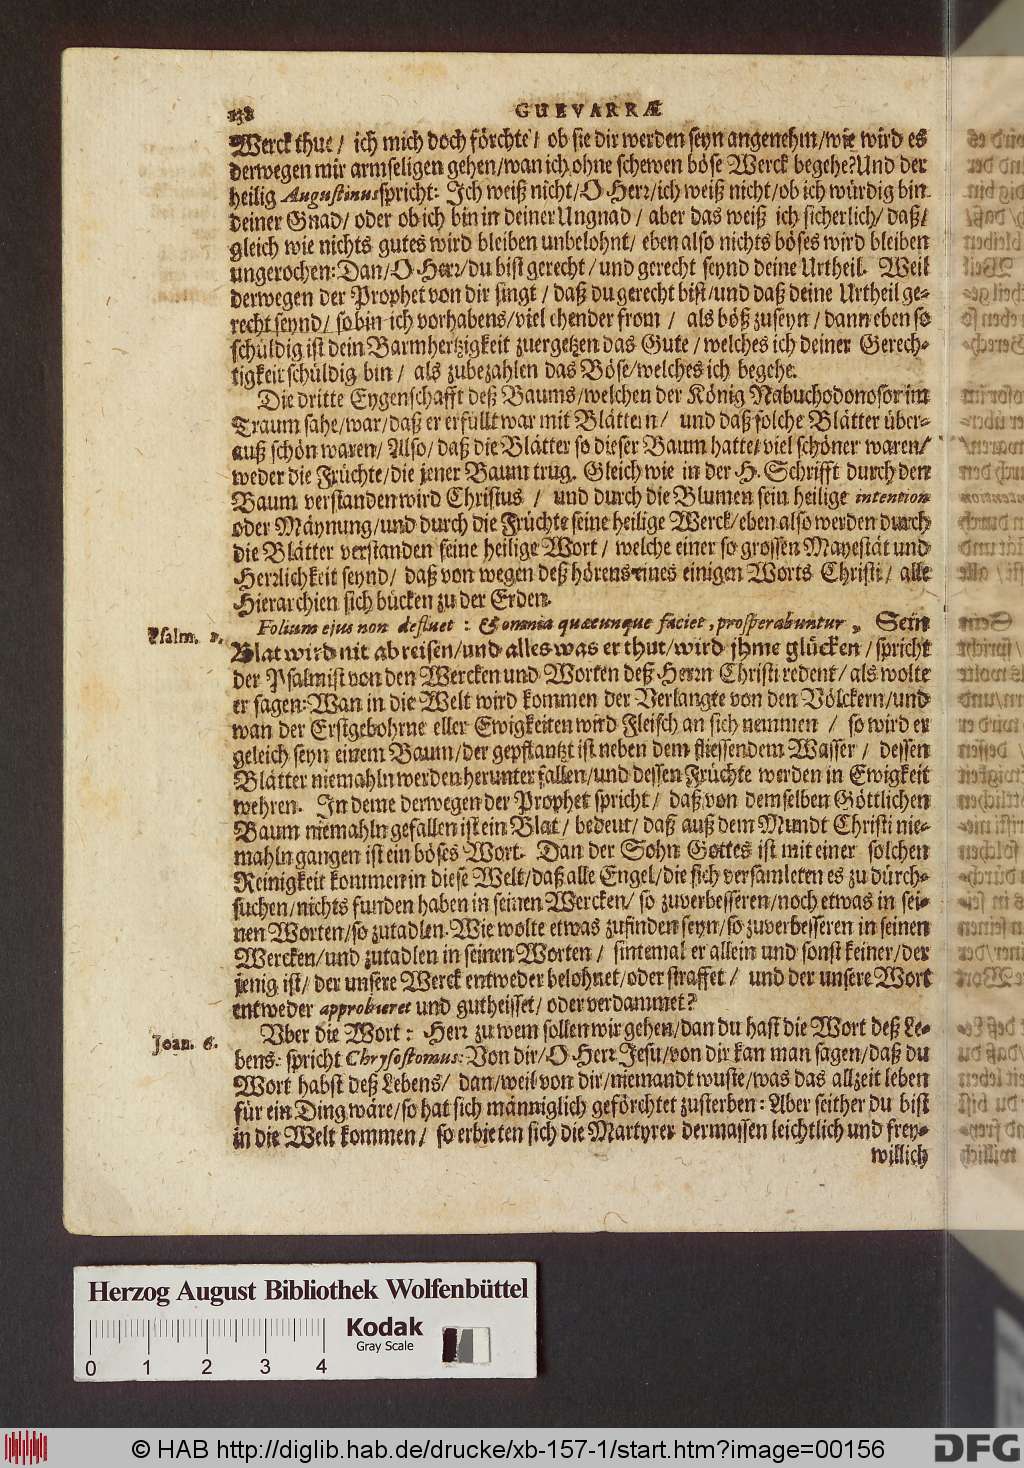 138 GUEVARRÆ
Werck thue / ich mich doch förchte / ob sie dir werden seyn angenehm / wie wird es
derwegen mir armseligen gehen / wan ich ohne schewen böse Werck begehe? Und der
heilig Augustinus spricht: Ich weiß nicht / O Herr / ich weiß nicht / ob ich würdig bin
deiner Gnad / oder ob ich bin in deiner Ungnad / aber das weiß ich sicherlich / daß /
gleich wie nichts gutes wird bleiben unbelohnt / eben also nichts böses wird bleiben
ungerochen: Dan / O Herr / du bist gerecht / und gerecht seynd deine Urtheil. Weil
derwegen der Prophet von dir singt / daß du gerecht bist / und daß deine Urtheil ge-
recht seynd / so bin ich vorhabens / viel ehender from / als böß zuseyn / dann eben so
schüldig ist dein Barmhertzigkeit zuergetzen das Gute / welches ich deiner Gerech-
tigkeit schüldig bin / als zubezahlen das Böse / welches ich begehe.
Die dritte Eygenschafft deß Baums / welchen der König Nabuchodonosor im
Traum sahe / war / daß er erfüllt war mit Blättern / und daß solche Blätter über-
auß schön waren / Also / daß die Blätter so dieser Baum hatte / viel schöner waren /
weder die Früchte / die jener Baum trug. Gleich wie in der H. Schrifft durch den
Baum verstanden wird Christus / und durch die Blumen sein heilige intention
oder Mäynung / und durch die Früchte seine heilige Werck / eben also werden durch
die Blätter verstanden seine heilige Wort / welche einer so grossen Mayestät und
Herrlichkeit seynd / daß von wegen deß hörens eines einigen Worts Christi / alle
Hierarchien sich bücken zu der Erden.
Psalm. 1. Folium ejus non defluet: & omnia quæcunque faciet, prosperabuntur, Sein
Blat wird nit abreisen / und alles was er thut / wird jhme glücken / spricht
der Psalmist von den Wercken und Worten deß Herrn Christi redent / als wolte
er sagen: Wan in die Welt wird kommen der Verlangte von den Völckern / und
wan der Erstgebohrne eller Ewigkeiten wird Fleisch an sich nemmen / so wird er
geleich seyn einem Baum / der gepflantzt ist neben dem fliessendem Wasser / dessen
Blätter niemahln werden herunter fallen / und dessen Früchte werden in Ewigkeit
wehren. In deme derwegen der Prophet spricht / daß von demselben Göttlichen
Baum niemahln gefallen ist ein Blat / bedeut / daß auß dem Mundt Christi nie-
mahln gangen ist ein böses Wort. Dan der Sohn Gottes ist mit einer solchen
Reinigkeit kommen in diese Welt / daß alle Engel / die sich versamleten es zu dürch-
suchen / nichts funden haben in seinen Wercken / so zuverbesseren / noch etwas in sei-
nen Worten / so zutadlen. Wie wolte etwas zufinden seyn / so zuverbesseren in seinen
Wercken / und zutadlen in seinen Worten / sintemal er allein und sonst keiner / der
jenig ist / der unsere Werck entweder belohnet / oder straffet / und der unsere Wort
entweder approbieret und gutheisset / oder verdammet?
Joan. 6. Uber die Wort: Herr zu wem sollen wir gehen / dan du hast die Wort deß Le-
bens: spricht Chrysostomus: Von dir / O Herr Jesu / von dir kan man sagen / daß du
Wort habst deß Lebens / dan / weil von dir / niemandt wuste / was das allzeit leben
für ein Ding wäre / so hat sich männiglich geförchtet zusterben: Aber seither du bist
in die Welt kommen / so erbieten sich die Martyrer dermassen leichtlich und frey-
willich
Herzog August Bibliothek Wolfenbüttel
Kodak
Gray Scale
0 1 2 3 4
© HAB http://diglib.hab.de/drucke/xb-157-1/start.htm?image=00156
DFG